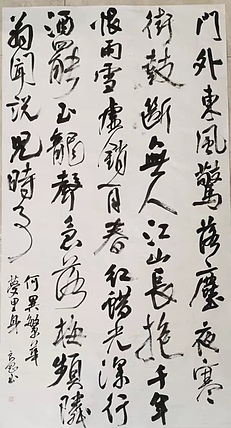 門外東風驚落塵夜寒
街鼓斷無人江山長抱千年
恨雨雪虛銷一月春紅蠟光深行
酒罷玉龍聲急落梅頻隣
翁聞說兒時事
何異繁華
夢里身